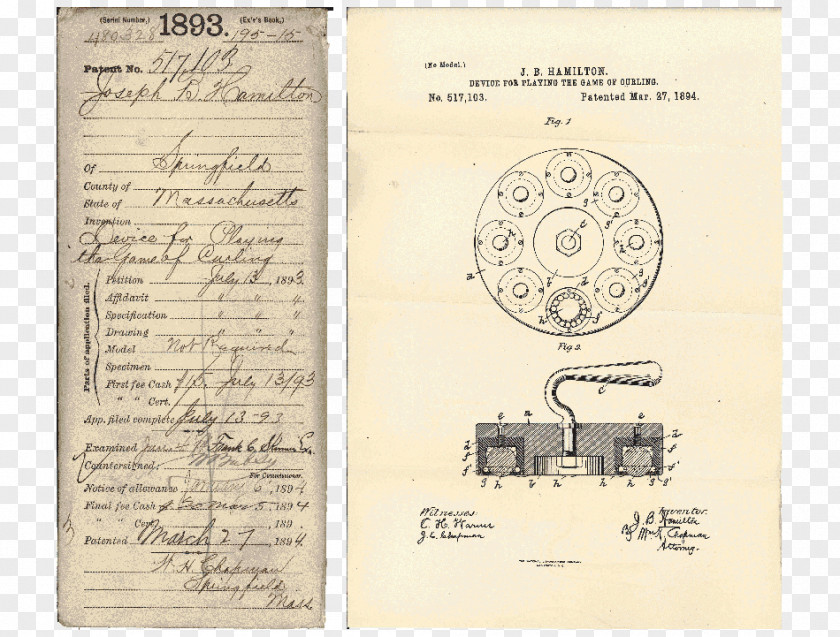 (Serial Number,) 1893. (Ex'r's Book,)
480328 195-15
Patent No. 517,103
Joseph B. Hamilton
Of Springfield
County of
State of Massachusetts
Invention
Device for Playing
the Game of Curling
Parts of application filed.
Petition July 13, 1893.
Affidavit " " "
Specification " " "
Drawing " " "
Model Not Required
Specimen
First fee Cash $15. July 13/93
" " Cert.
App. filed complete July 13-93
Examined Frank C. Ex.
Countersigned:
For Commissioner.
Notice of allowance 6, 1894
Final fee Cash $20 Mar 5, 1894
" " Cert. , 189
Patented March 27, 1894.
W. H. Chapman
Springfield
Mass
(No Model.)
J. B. HAMILTON.
DEVICE FOR PLAYING THE GAME OF CURLING.
No. 517,103. Patented Mar. 27, 1894.
Fig. 1
g
h h
c
g
a b d
h f
Fig. 2.
c
e a e
d d
f f
g h b h g
Witnesses: Inventor:
J. B. Hamilton
J. C. Chapman Chapman
Attorney.